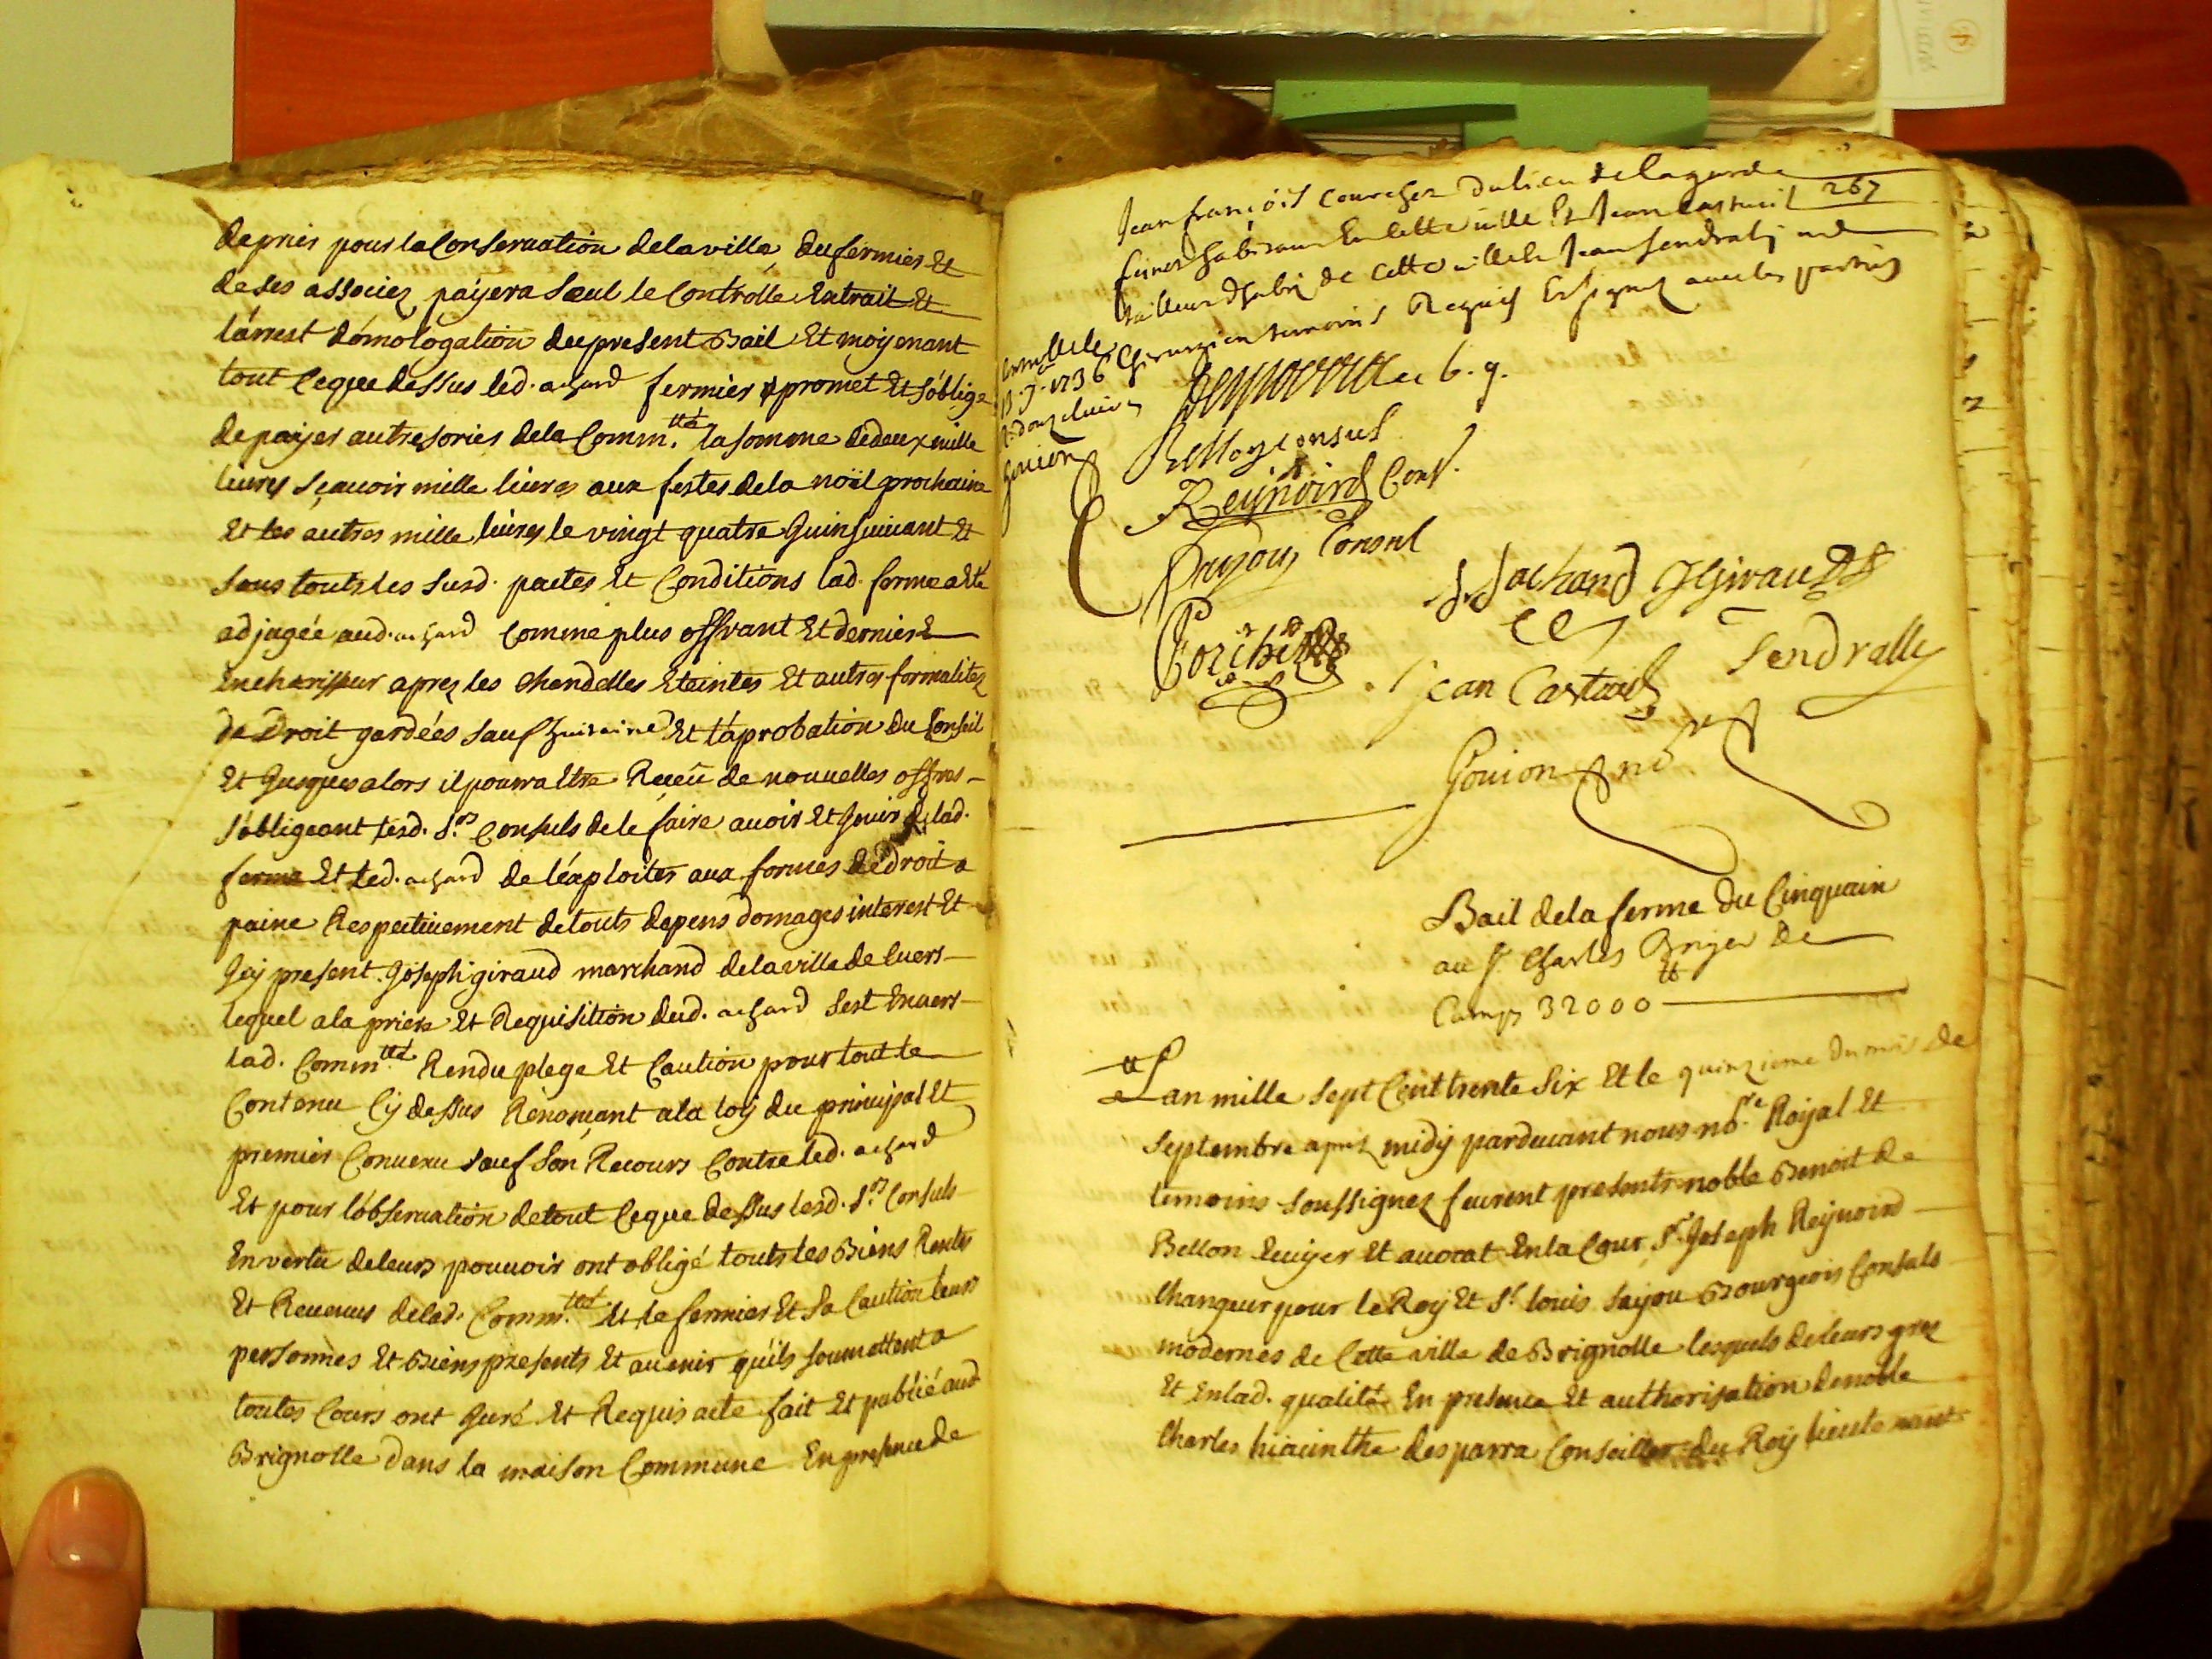 de prier pour la Conservation de la ville, du fermier Et
de ses associez payera seul le Controlle Extrait Et
l'arrest d'omologation du present Bail Et moyenant
tout Ce que dessus led. achard fermier promet Et s'oblige
de payer au tresorier de la Comm.tté la somme de deux mille
livres Sçavoir mille livres aux festes de la noël prochaine
Et les autres mille livres le vingt quatre Juin suivant Et
sous touts les susd. pactes Et Conditions lad. ferme a Eté
adjugée aud. achard Comme plus offrant Et dernier
Encherisseur aprez les Chandelles Eteintes Et autres formalitez
de Droit gardées sauf huitaine Et l'aprobation du Conseil
Et Jusques alors il pourra Etre Receu de nouvelles offres
s'obligeant lesd. s.rs Consuls de le faire avoir Et Jouir de lad.
ferme Et led. achard de l'exploiter aux formes de droit a
paine Respectivement de touts depens domages interest Et
Icy present Joseph giraud marchand de la ville de Cuers
lequel a la priere Et Requisition dud. achard s'est Envers
lad. Comm.tté Rendu plege Et Caution pour tout le
Contenu Cy dessus Renonçant a la loy du principal Et
premier Convenu sauf son Recours Contre led. achard
Et pour l'observation de tout Ce que dessus lesd. s.rs Consuls
En vertu de leurs pouvoir ont obligé touts les Biens Rentes
Et Revenus de lad. Comm.tté Et le fermier Et sa Caution leurs
personnes Et Biens presents Et avenir qu'ils soumettent a
toutes Cours ont Juré Et Requis acte fait Et publié aud
Brignolle dans la maison Commune En presence de
267
Jean françois du lieu de la garde
habitant En Cette ville Et Jean Castueil
tailleur d'habits de Cette ville Et Jean Sendrally
Chirurgien temoins Requis Et signez avec les parties
1736
Gouion
Bellon Consul
Reynoird Cons.
Consul
J. Jachard J Giraud
Jean Castueil
Sendrally
Gouion no.re
Bail de la ferme du Cinquain
au s.r Charles Briger De
Camps 32000 tt
L'an mille sept Cent trente six Et le quinzieme du mois de
septembre aprez midy pardevant nous no.re Royal Et
temoins soussignez feurent presents noble Benoit de
Bellon Ecuyer Et avocat En la Cour, s.r Joseph Reynoird
Changeur pour le Roy Et s.r louis sajou Bourgeois Consuls
modernes de Cette ville de Brignolle lesquels de leurs grez
Et En lad. qualité En presence Et authorisation de noble
Charles hiacinthe desparra Conseiller du Roy lieutenant